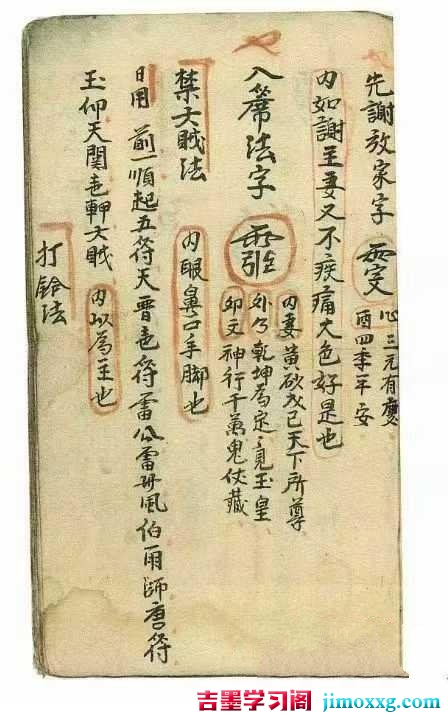 先謝放家字
心三元有慶
酉四季平安
内如謝主妻又不疾痛大色好是也
入篱法字
内妻黃砂戊己天下所尊
外勺乾坤為定竟玉皇
卯文神行千萬鬼伏藏
禁大賊法
内眼鼻口手脚也
日用前一順起五符天晋壱符雷公雷母風伯雨師唐符
玉仰天関壱軒大賊
内以為主也
打鈴法
吉墨学习阁 jimoxxg.com